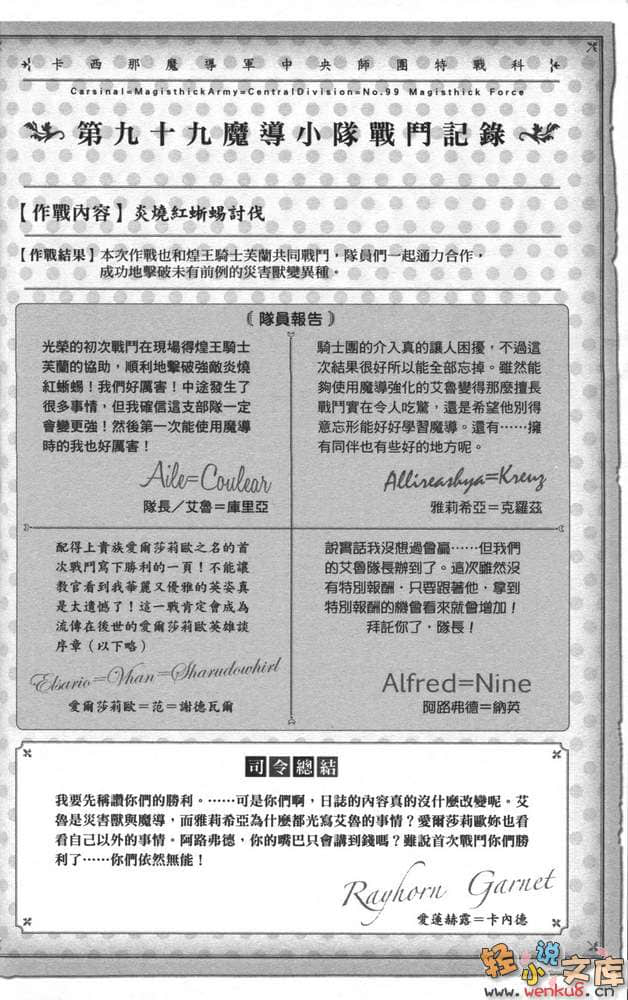 卡西那魔導軍中央師團特戰科
Carsinal=MagisthickArmy=CentralDivision=No.99 Magisthick Force
第九十九魔導小隊戰鬥記錄
【作戰內容】炎燒紅蜥蜴討伐
【作戰結果】本次作戰也和煌王騎士芙蘭共同戰鬥，隊員們一起通力合作，
成功地擊破未有前例的災害獸變異種。
《隊員報告》
光榮的初次戰鬥在現場得煌王騎士
芙蘭的協助，順利地擊破強敵炎燒
紅蜥蜴！我們好厲害！中途發生了
很多事情，但我確信這支部隊一定
會變更強！然後第一次能使用魔導
時的我也好厲害！
Aile=Coulear
隊長／艾魯＝庫里亞
騎士團的介入真的讓人困擾，不過這
次結果很好所以能全部忘掉。雖然能
夠使用魔導強化的艾魯變得那麼擅長
戰鬥實在令人吃驚，還是希望他別得
意忘形能好好學習魔導。還有……擁
有同伴也有些好的地方呢。
Allireashya=Kreuz
雅莉希亞＝克羅茲
配得上貴族愛爾莎莉歐之名的首
次戰鬥寫下勝利的一頁！不能讓
教官看到我華麗又優雅的英姿真
是太遺憾了！這一戰肯定會成為
流傳在後世的愛爾莎莉歐英雄談
序章（以下略）
Elsario=Vhan=Sharudowhirl
愛爾莎莉歐＝范＝謝德瓦爾
說實話我沒想過會贏……但我們
的艾魯隊長辦到了。這次雖然沒
有特別報酬，只要跟著他，拿到
特別報酬的機會看來就會增加！
拜託你了，隊長！
Alfred=Nine
阿路弗德＝納英
司令總結
我要先稱讚你們的勝利。……可是你們啊，日誌的內容真的沒什麼改變呢。艾
魯是災害獸與魔導，而雅莉希亞為什麼都光寫艾魯的事情？愛爾莎莉歐妳也看
看自己以外的事情。阿路弗德，你的嘴巴只會講到錢嗎？雖說首次戰鬥你們勝
利了……你們依然無能！
Rayhorn Garnet
愛蓮赫露＝卡內德
轻小说文库
www.wenku8.cn